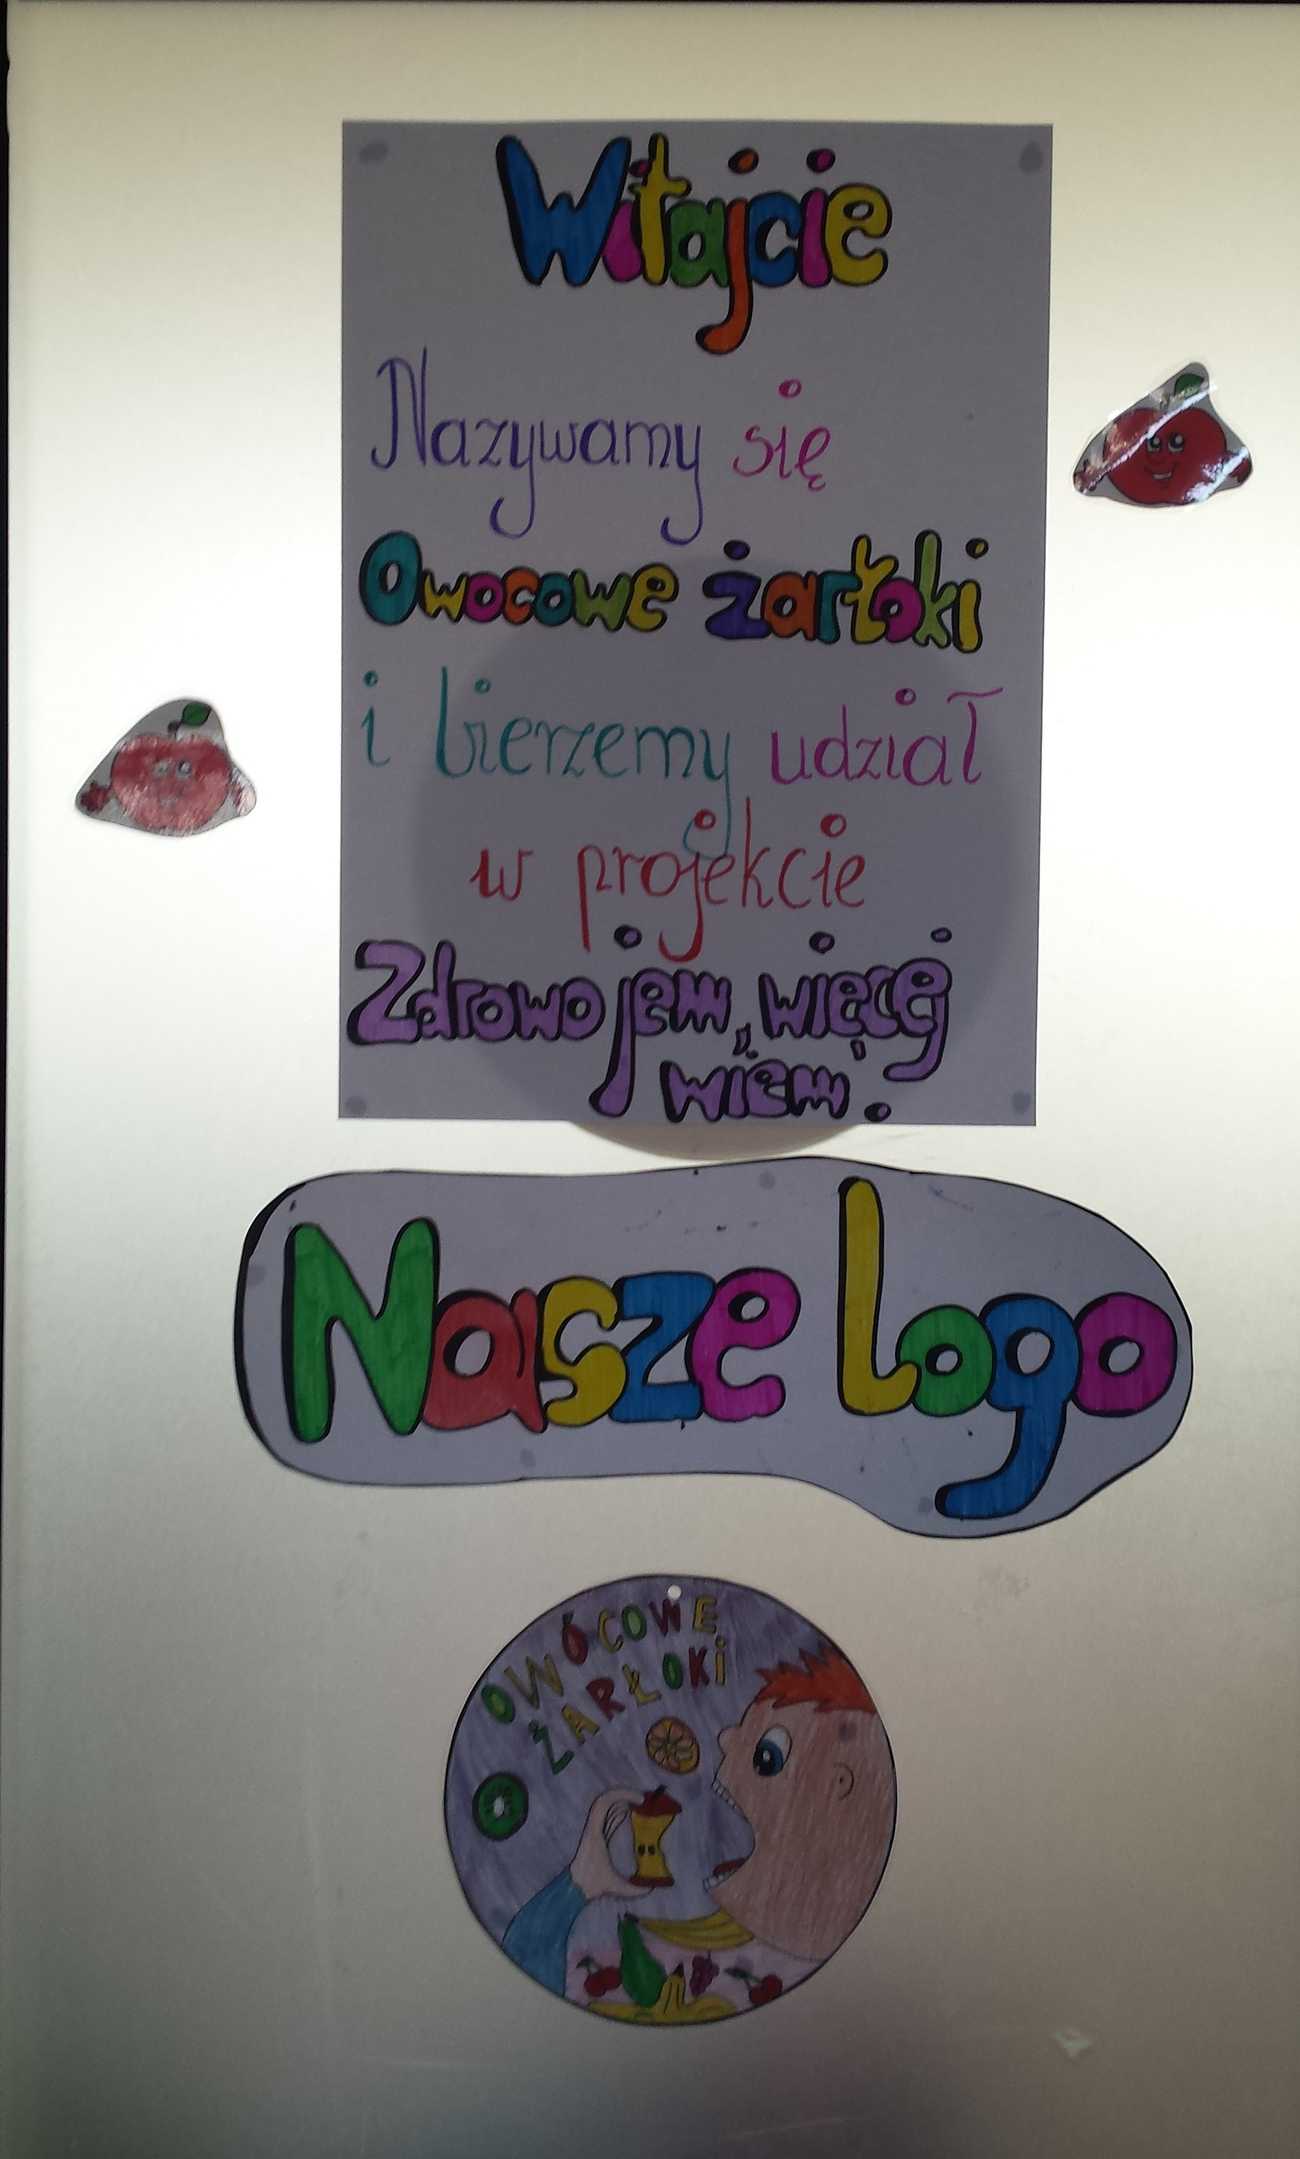 Witajcie
Nazywamy się
Owocowe żarłoki
i bierzemy udział
w projekcie
Zdrowo jem, więcej
wiem.
Nasze Logo
OWÓCOWE
ŻARŁOKi